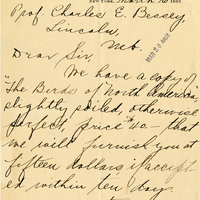 NEW YORK, March 16 1885
Prof Charles E. Bessey,
Lincoln,
Neb.
Dear Sir,
We have a copy of
"The Birds of North America
slightly soiled, otherwise
perfect, price $40.- that
we will furnish you at
fifteen dollars if accept
ed within ten days.